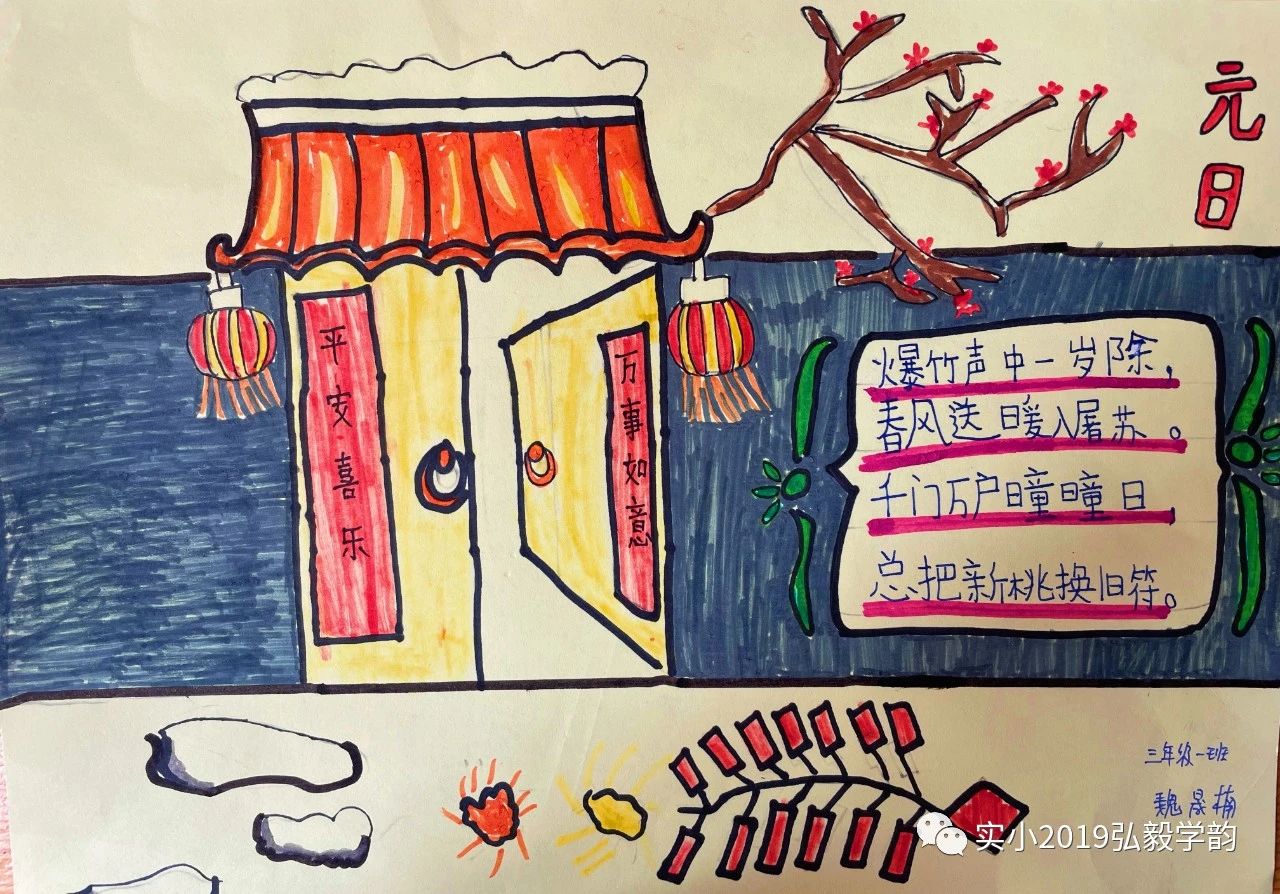 元日
平安喜乐
万事如意
爆竹声中一岁除，
春风送暖入屠苏。
千门万户曈曈日，
总把新桃换旧符。
三年级一班
魏晟楠
实小2019弘毅学韵